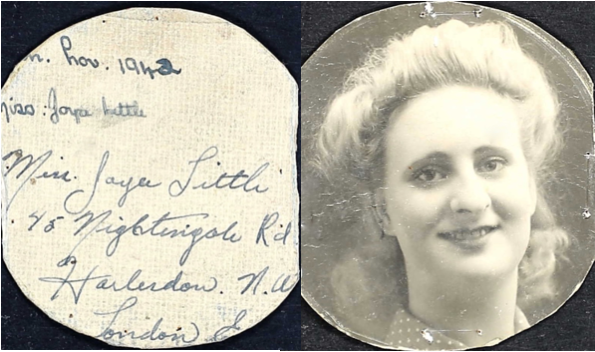 n. Nov. 1942
Miss: Joyce Little
Miss. Joyce Little
45 Nightingale R'd
Harlesdon. N.W
London E